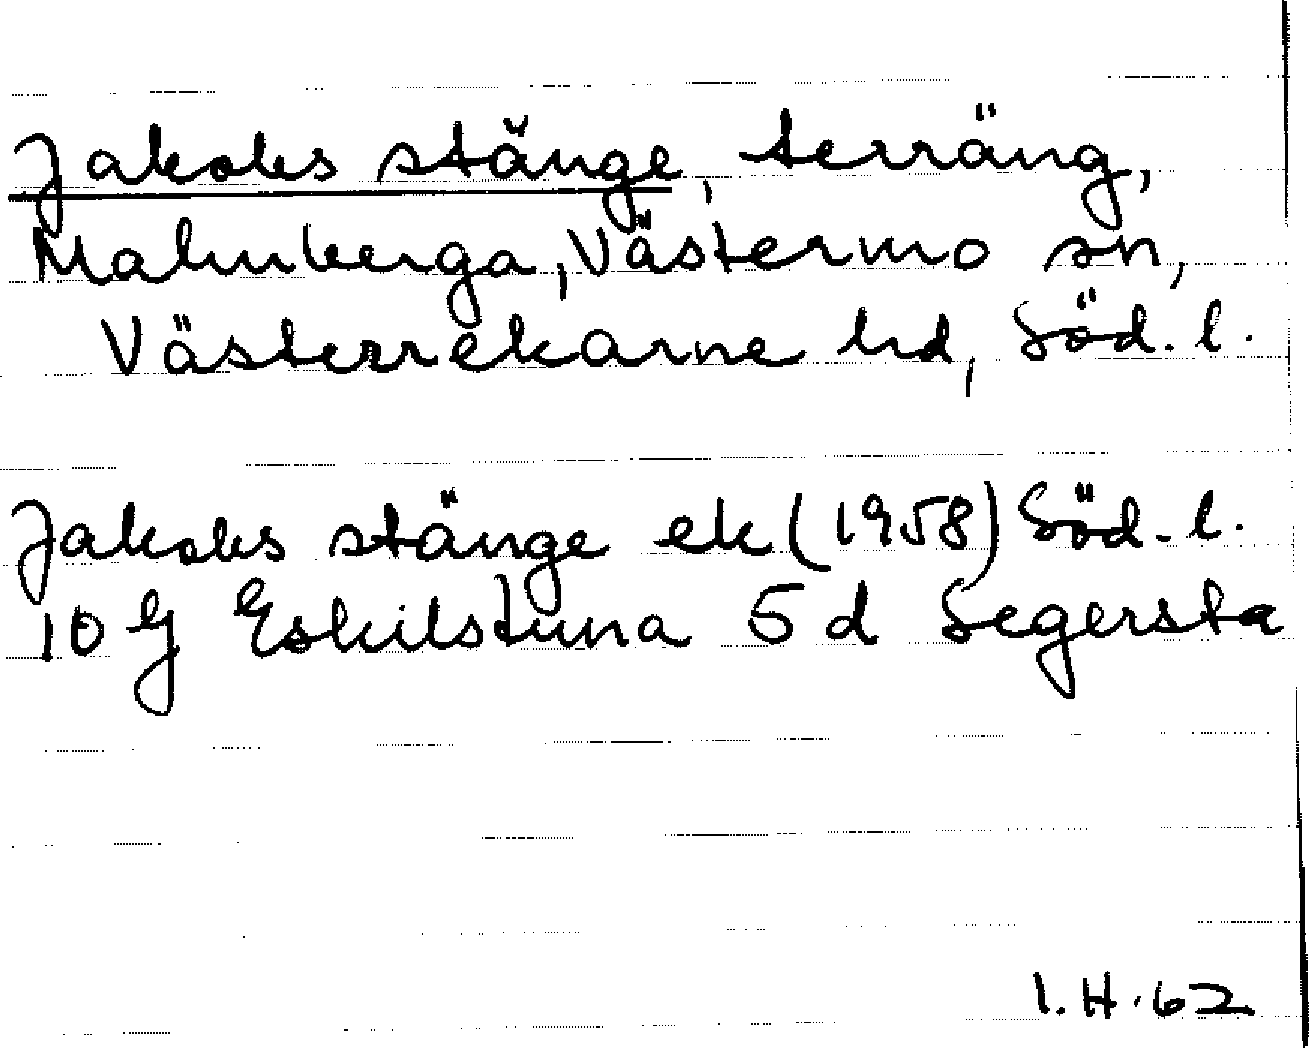 Jakobs stänge, terräng,
Malmberga, Västermo sn,
Västerrekarne hd, Söd. l.
Jakobs stänge ek (1958) Söd. l.
10 G Eskilstuna 5 d Segersta
I. H. 62